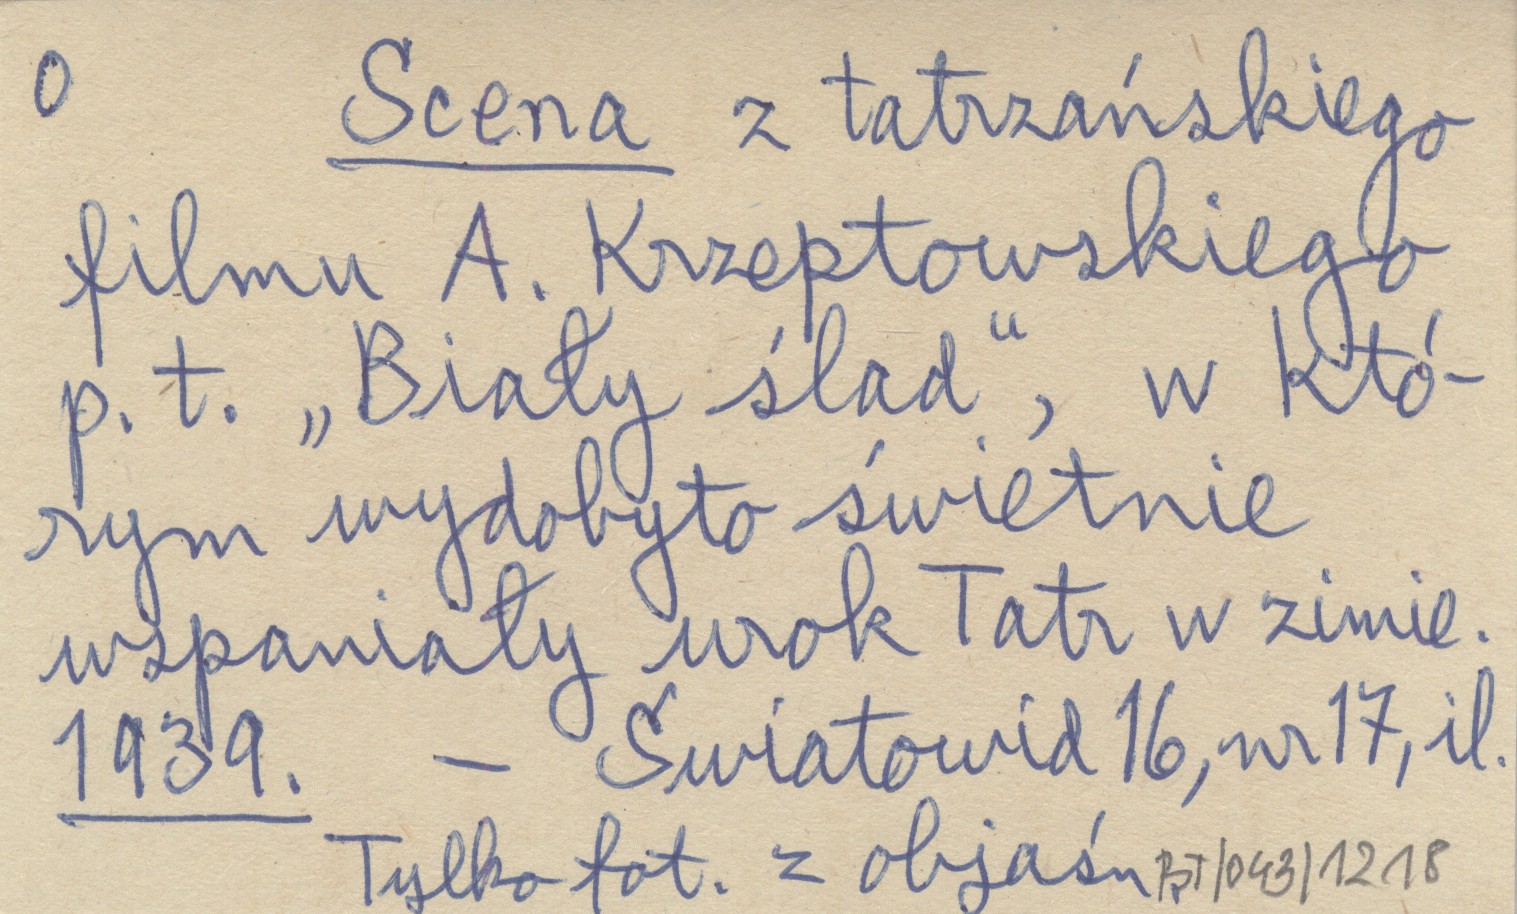 0 Scena z tatrzańskiego
filmu A. Krzeptowskiego
p.t. „Biały ślad“, w któ-
rym wydobyto świetnie
wspaniały urok Tatr w zimie.
1939. – Światowid 16, nr 17, il.
Tylko fot. z objaśn BT/043/1218